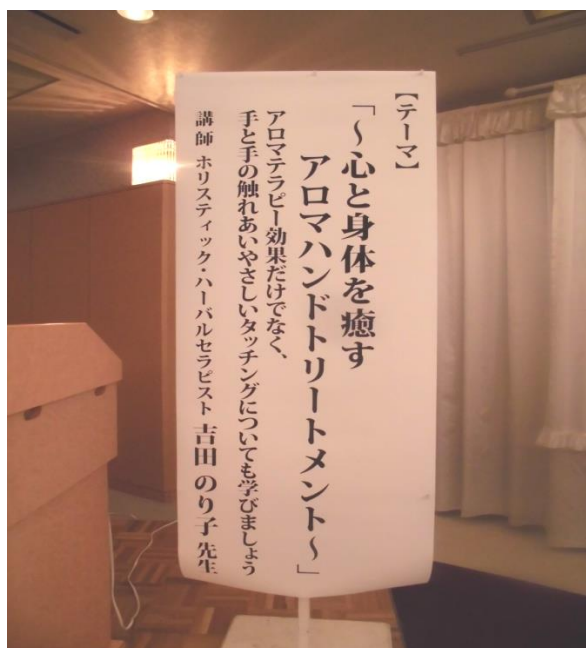 【テーマ】
「～心と身体を癒す
アロマハンドトリートメント～」
アロマテラピー効果だけでなく、
手と手の触れあいやさしいタッチングについても学びましょう
講師 ホリスティック・ハーバルセラピスト 吉田 のり子 先生